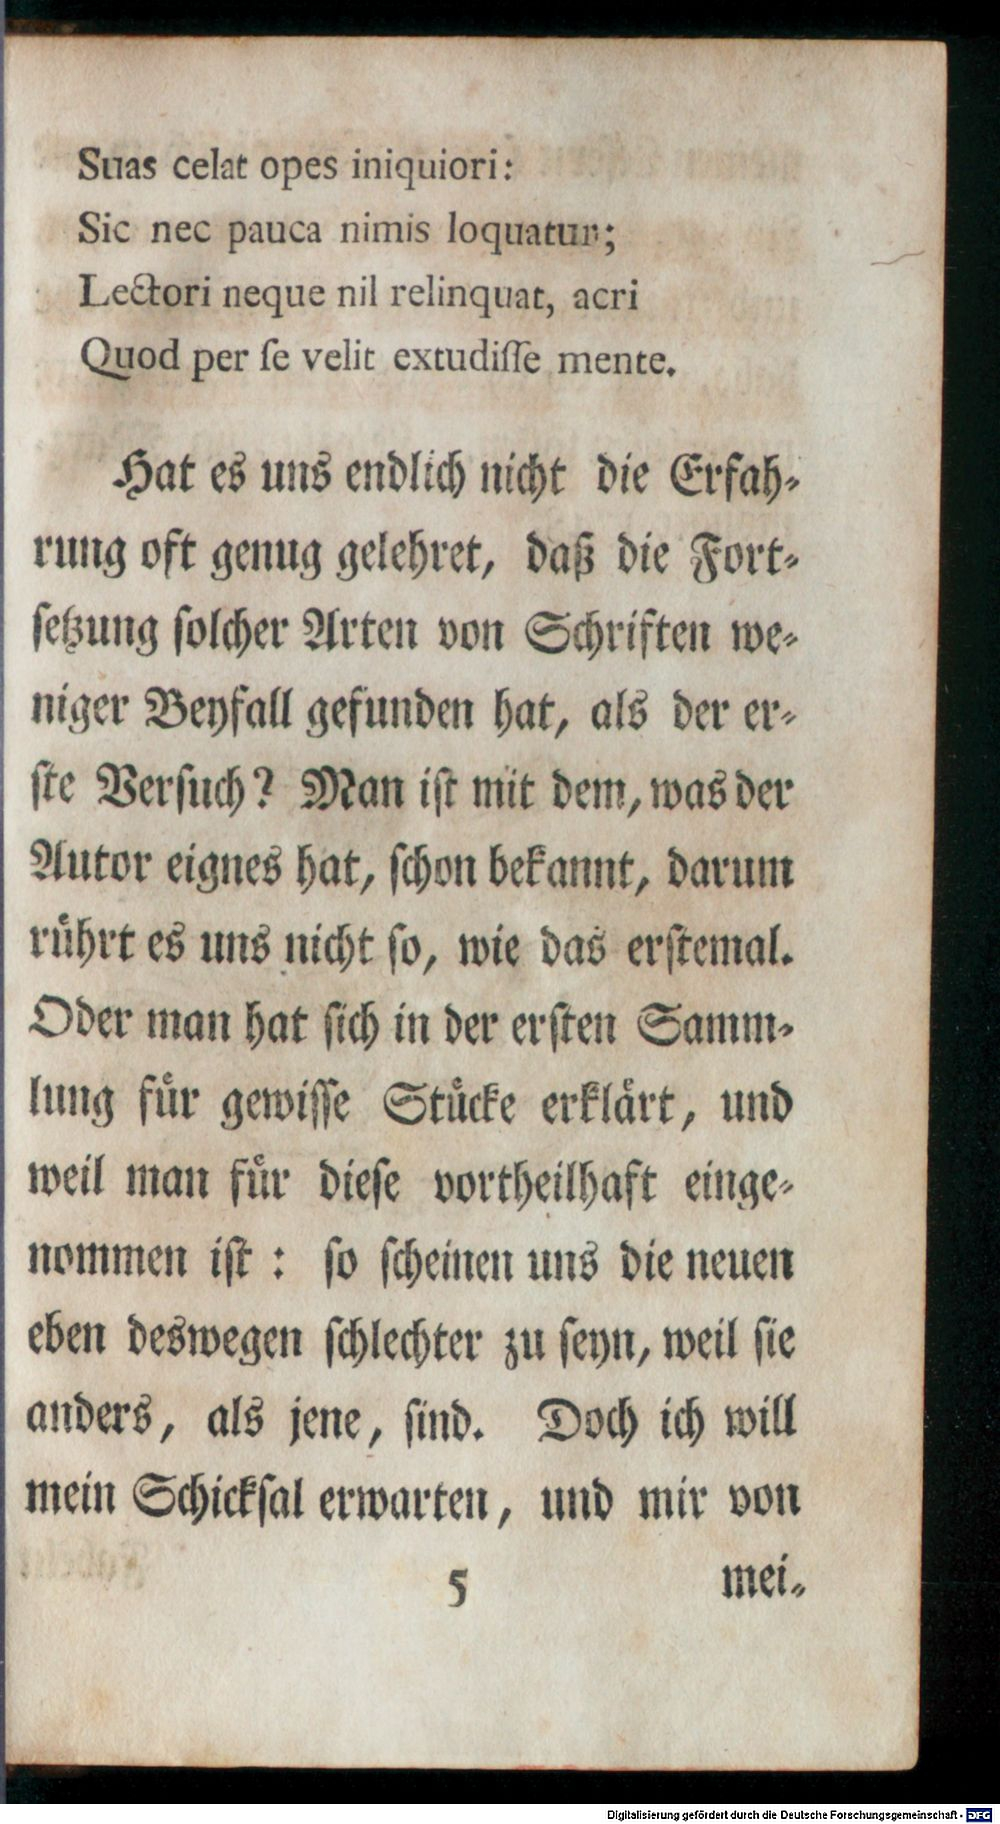 Suas celat opes iniquiori:
Sic nec pauca nimis loquatur;
Lectori neque nil relinquat, acri
Quod per ſe velit extudiſſe mente.
Hat es uns endlich nicht die Erfah⸗
rung oft genug gelehret, daß die Fort⸗
ſetzung ſolcher Arten von Schriften we⸗
niger Beyfall gefunden hat, als der er⸗
ſte Verſuch? Man iſt mit dem, was der
Autor eignes hat, ſchon bekannt, darum
ruͤhrt es uns nicht ſo, wie das erſtemal.
Oder man hat ſich in der erſten Samm⸗
lung fuͤr gewiſſe Stuͤcke erklaͤrt, und
weil man fuͤr dieſe vortheilhaft einge⸗
nommen iſt: ſo ſcheinen uns die neuen
eben deswegen ſchlechter zu ſeyn, weil ſie
anders, als jene, ſind. Doch ich will
mein Schickſal erwarten, und mir von
5 mei⸗
Digitalisierung gefördert durch die Deutsche Forschungsgemeinschaft - DFG